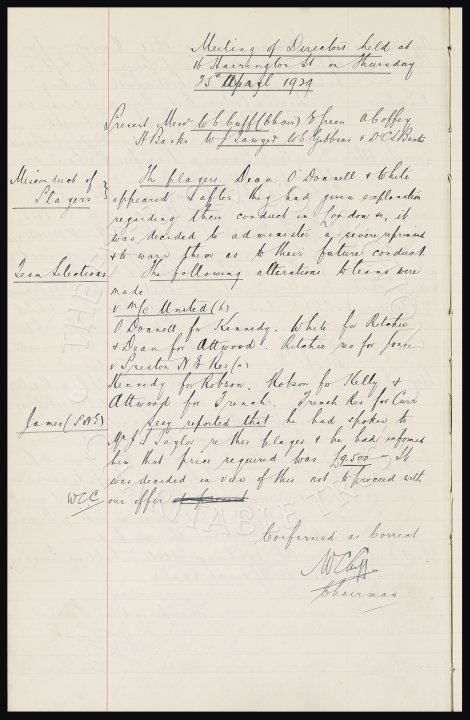 Meeting of Directors held at
16 Harrington St on Thursday
25th April 1929
Present Messrs W C Cuff (Chair) E Green A Coffey
H Banks W J Sawyer W C Gibbins & D C L Bain
Misconduct of
Players
The players Dean O'Donnell & White
appeared & after they had given explanation
regarding their conduct in London &c, it
was decided to administer a severe reprimand
& to warn them as to their future conduct
Team Selections
The following alterations to teams were
made
v M/c United (h)
O'Donnell for Kennedy. White for Ritchie
& Dean for Attwood. Ritchie res for Jones
v Preston N E Res (a)
Kennedy for Robson. Robson for Kelly &
Attwood for French. French Res for Curr
James (P.N.E)
Secy reported that he had spoken to
Mr J I Taylor re this player & he had informed
him that price required was £9,500 - It
was decided in view of this not to proceed with
WCC
our offer
Confirmed as Correct
W C Cuff
Chairman